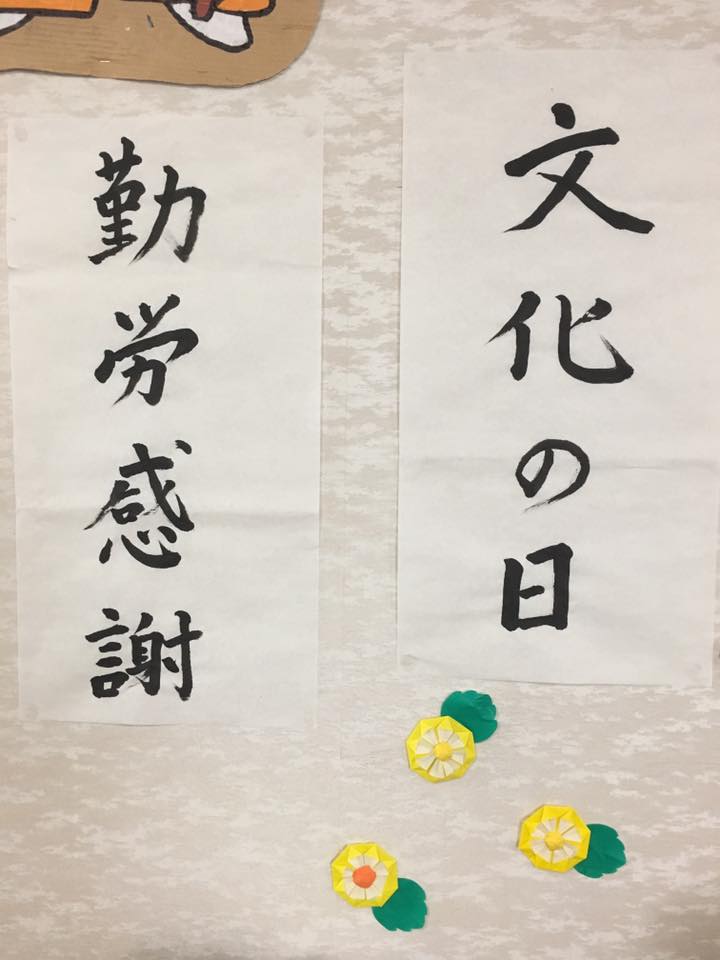 文化の日
勤労感謝